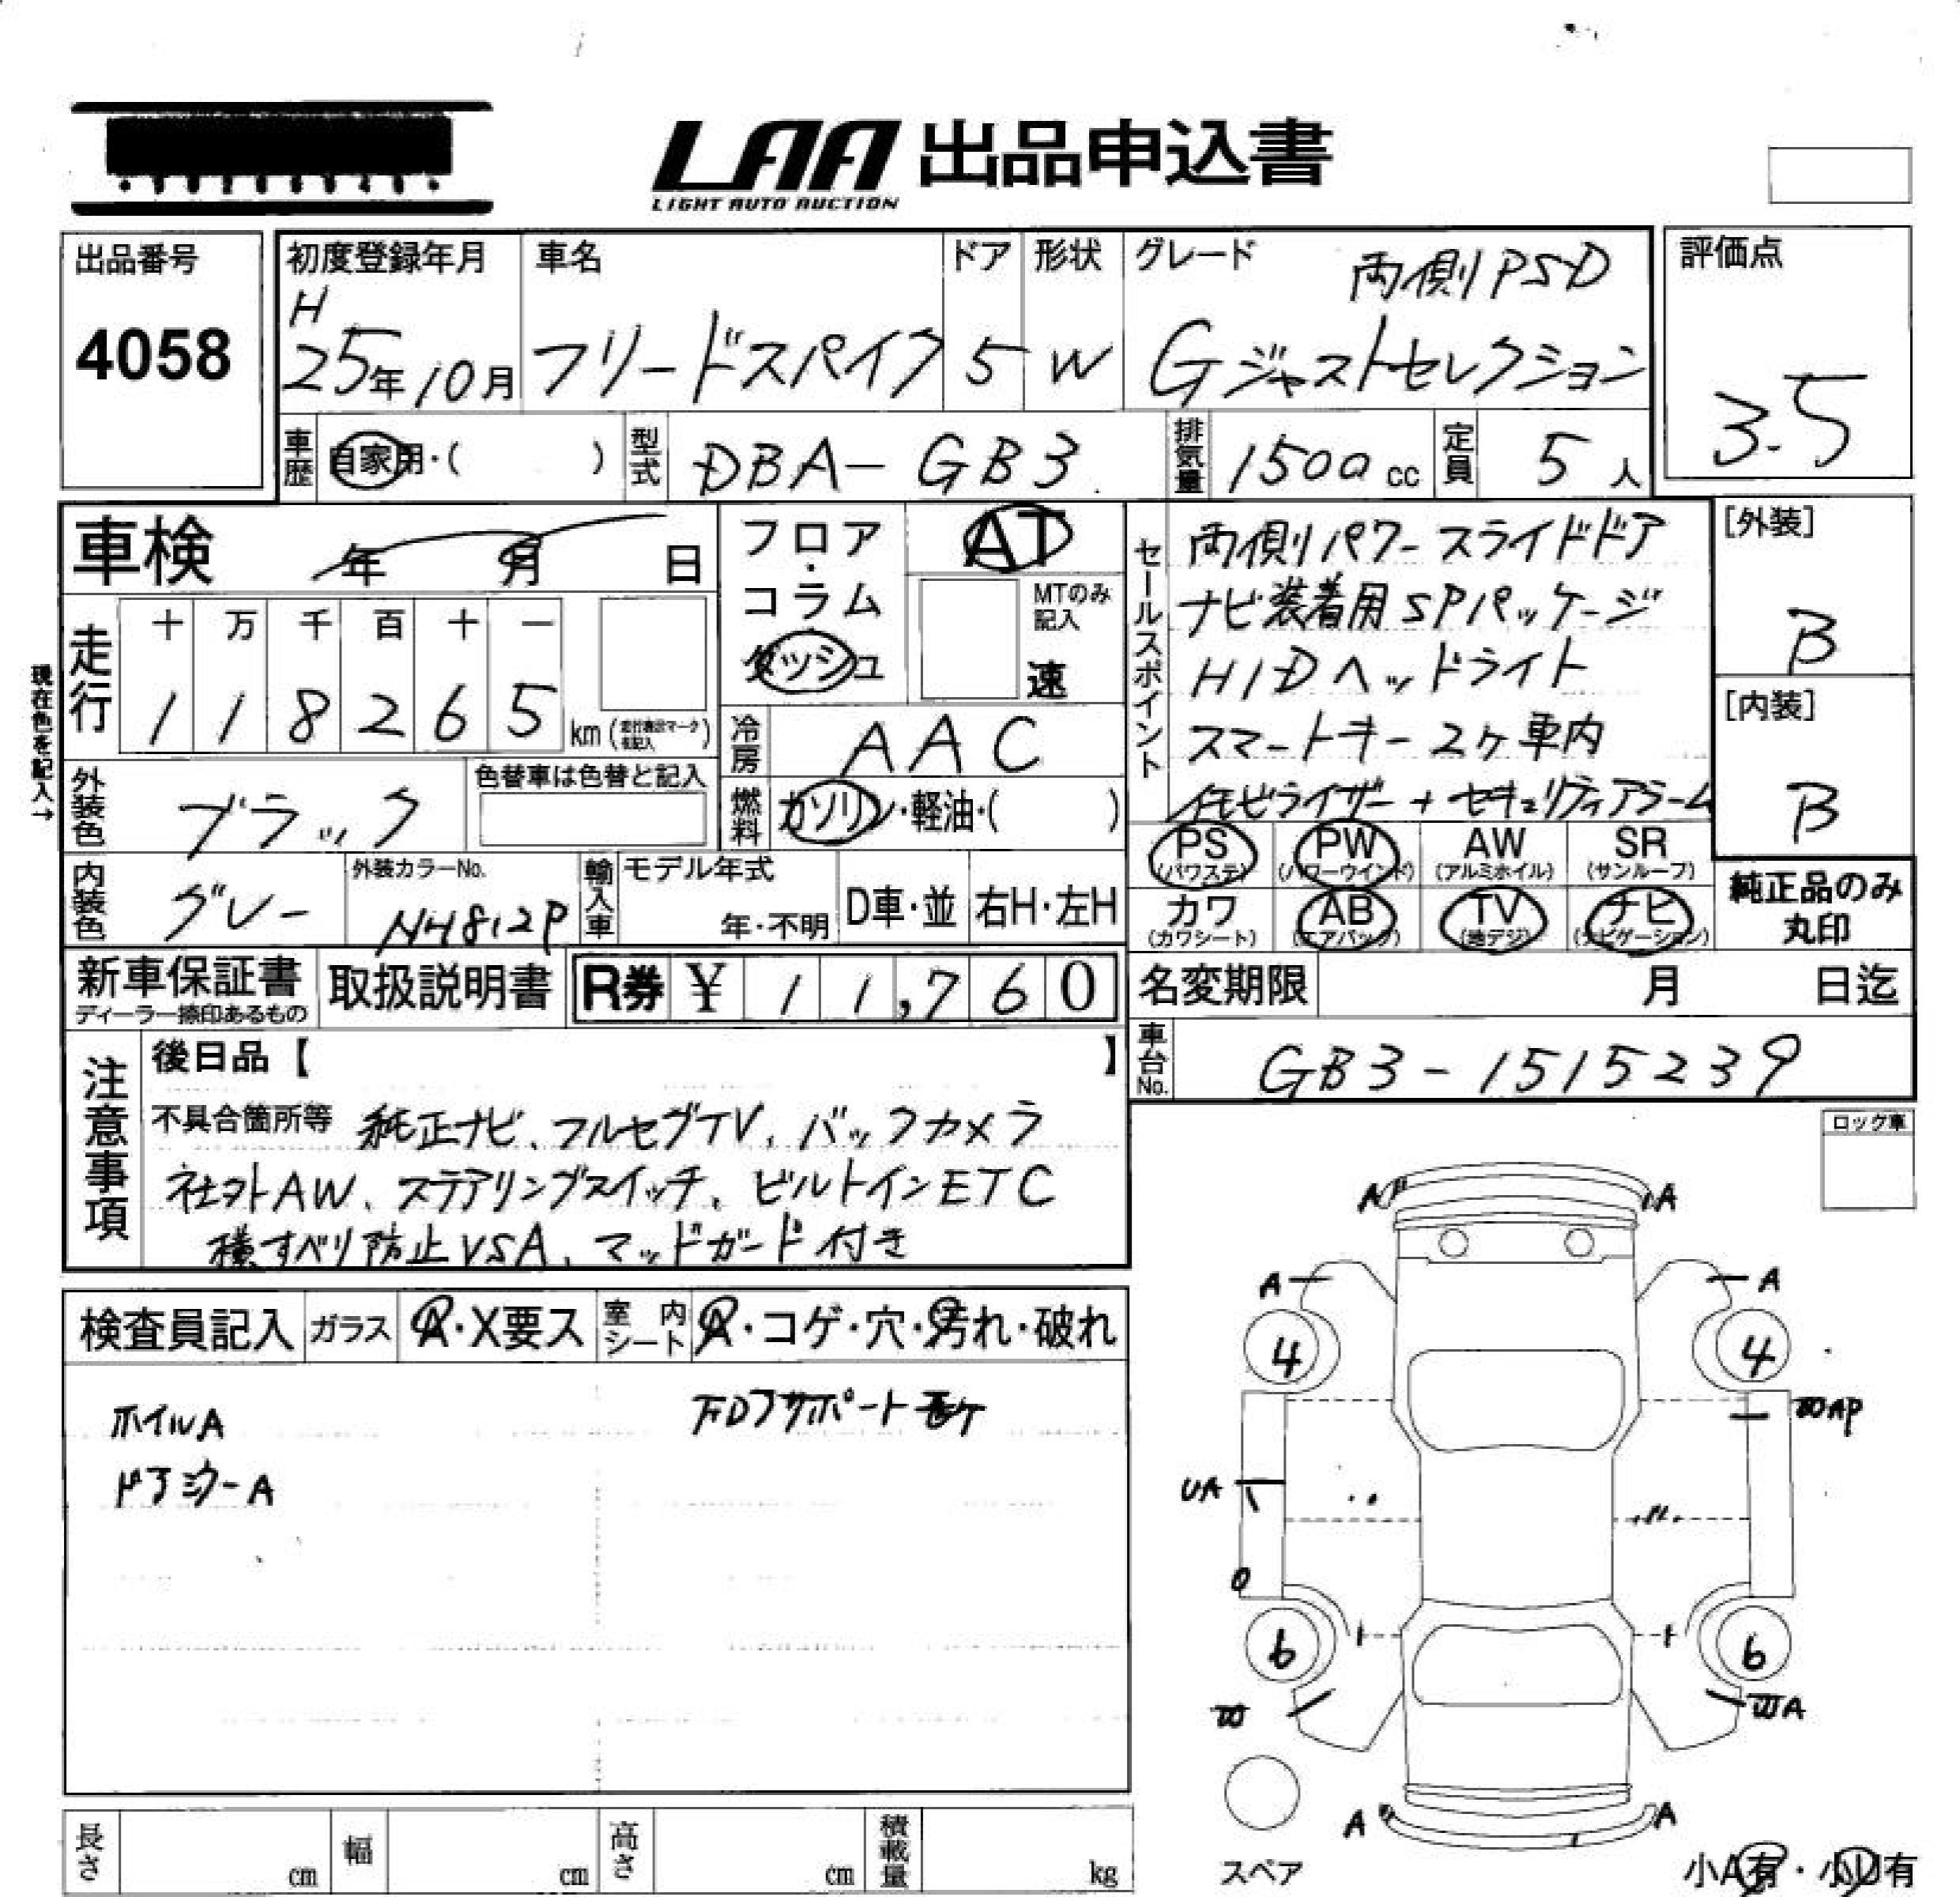 LAA 出品申込書
LIGHT AUTO AUCTION
出品番号
4058
初度登録年月
H
25年10月
車名
フリードスパイク
ドア
5
形状
W
グレード
両側PSD
Gジャストセレクション
評価点
3.5
車歴
自家用・( )
型式
DBA-GB3
排気量
1500cc
定員
5人
車検 年 月 日
走行
十 万 千 百 十 一
1 1 8 2 6 5 km
現在色を記入→
フロア・コラム
ダッシュ
AT
MTのみ記入
速
冷房
AAC
燃料
ガソリン・軽油・( )
セールスポイント
両側パワースライドドア
ナビ装着用SPパッケージ
HIDヘッドライト
スマートキー2ケ車内
イモビライザー+セキュリティアラーム
[外装]
B
[内装]
B
外装色
ブラック
色替車は色替と記入
内装色
グレー
外装カラーNo.
NH812P
輸入車
モデル年式
年・不明
D車・並
右H・左H
PS
(パワステ)
PW
(パワーウインド)
AW
(アルミホイル)
SR
(サンルーフ)
カワ
(カワシート)
AB
(エアバック)
TV
(地デジ)
ナビ
(ナビゲーション)
純正品のみ
丸印
新車保証書
ディーラー捺印あるもの
取扱説明書
R券 ¥ 11,760
名変期限 月 日迄
車台No.
GB3-1515239
注意事項
後日品【 】
不具合箇所等 純正ナビ、フルセグTV、バックカメラ
社外AW、ステアリングスイッチ、ビルトインETC
横すべり防止VSA、マッドガード付き
ロック車
検査員記入
ガラス
A・X要ス
室内シート
A・コゲ・穴・汚れ・破れ
ホイルA
ドアミラーA
A A
A A
4 4
UA
6 6
A A
スペア
小A有・小U有
長さ cm
幅 cm
高さ cm
積載量 kg